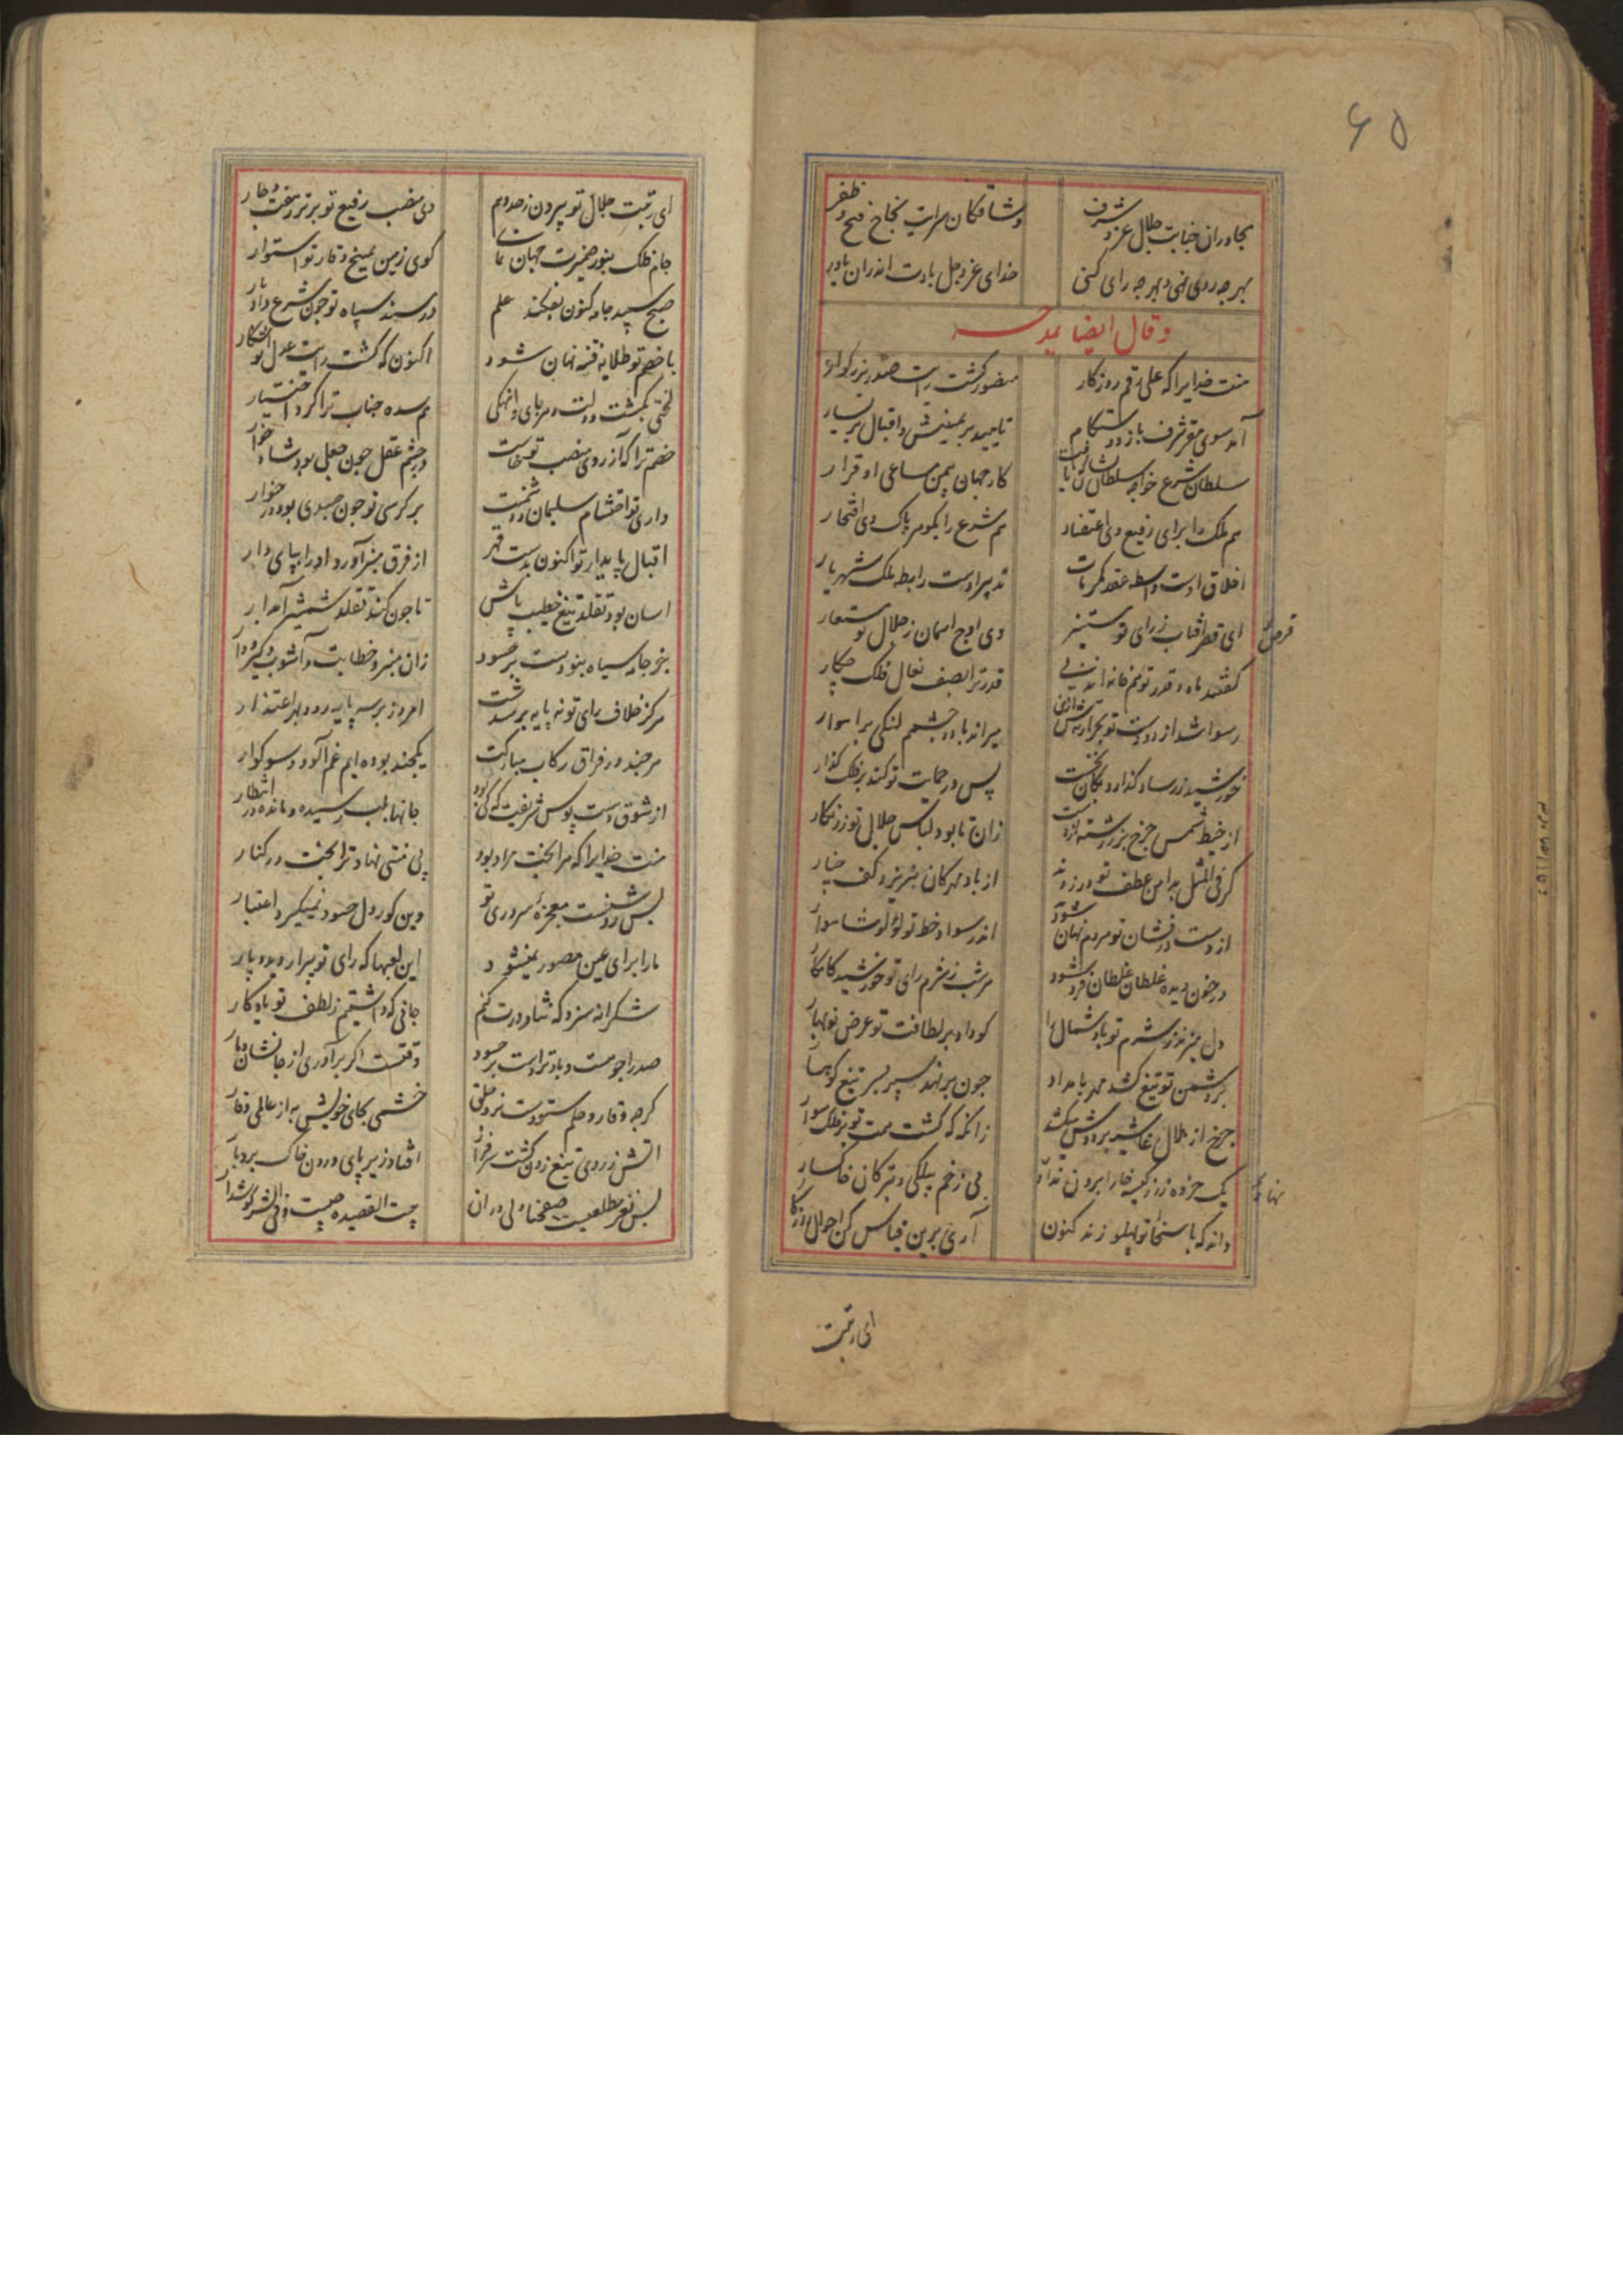 ۶۵
مجاوران جنابت جلال عز و شرف
وشاقکان سرایت نجاح فتح و ظفر
بهر چه روی نهی و بهر چه رای کنی
خدای عز و جل بادت اندران یاور
وقال ایضا یمدحه
منت خدایرا که علی رغم روزکار
منصور کشت رایت صدر بزرکوار
آمد سوی مقر شرف باز دوستکام
تایید بر یمینش و اقبال بر یسار
سلطان شرع خواجه سلطان نشان که یافت
کار جهان بیمن مساعی او قرار
هم ملک را برای رفیع وی اعتضاد
هم شرع را بکوهر پاک وی افتخار
اخلاق اوست واسطه عقد مکرمات
تدبیر اوست رابطه ملک شهریار
ای قطر افتاب ز رای تو مستنیر
قرص
وی اوج اسمان ز جلال تو مستعار
کفتند ماه و قدر تو هم خانه اند نی
قدر ترا بصف نعال فلک چکار
رسوا شد از دو دست تو بحر ارنه پیش ازین
میراند باد و چشم لنکی براهوار
خورشید زر ساو کذارد بکان نخست
پس در حمایت تو کند بر فلک کذار
از خیط شمس چرخ بزر رشته تازدست
زان تا بود لباس جلال تو زرنکار
کر فی المثل بدامن عطف تو در زند
از باد مهرکان بنریزد کف چنار
از دست درفشان تو مردم نهان شود
اندر سواد خط تو لؤلؤ شاهوار
در خون دیده غلطان غلطان فرو شود
هر شب ز شرم رای تو خورشید کامکار
دل بر نزد ز شرم تو باد شمال را
کو داد بر لطافت تو عرض نوبهار
بر دشمن تو تیغ کشد مهر بامداد
چون بر نهد سپر بسر تیغ کوهسار
چرخ از هلال غاشیه بر دوش میکشد
زانکه که کشت همت تو بر فلک سوار
یک خرده زر ز کیسه خارا برون نداد
نهاد
بی زخم بیلکی دو تبر کان خاکسار
داند که با سخا تو پهلو زند کنون
آری برین قیاس کن احوال روزکار
ای رتبت
ای رتبت جلال تو بیرون ز حد وهم
وی منصب رفیع تو برتر ز هفت و چار
جام فلک بنور ضمیرت جهان نمای
کوی زمین بمیخ وقار تو استوار
صبح سپید جامه کنون بفکند علم
در سند سیاه تو چون شرع داد بار
با خصم تو طلایه فتنه نهان شود
اکنون که کشت رایت عدل تو اشکار
لختی بکشت دولت و هر جای وانکهی
هم سده جناب ترا کرد اختیار
خصم ترا که آرزوی منصب تو خاست
در چشم عقل چون جعلی بود شاد خوار
داری تو احتشام سلیمان و دشمنت
بر کرسی تو چون جسدی بود در خوار
اقبال پایدار تو اکنون بدست قهر
از فرق منبر آورد او را بپای دار
اسان بود تقلد تیغ خطیب باش
تا چون کند تقلد شمشیر آبدار
بر جامه سیاه بنودست بر حسود
زان منبر و خطابت و آشوب و کیر و دار
هر کز خلاف رای تو نه پایه بر شدست
امروز بر سه پایه رود بهر اعتذار
هر چند در فراق رکاب مبارکت
یکچند بوده ایم غم آلود و سوکوار
از شوق دست بوس شریفت که کی بود
جانها بلب رسیده و مانده در انتظار
منت خدایرا که هر انچت مراد بود
بی منتی نهاد ترا بخت در کنار
بس روشنست معجزه سروری تو
وین کوردل حسود نمیکیرد اعتبار
ما را برای عین مصور نمیشود
این لعبها که رای تو بیرار دید و پار
شکرانه سزد که نثار درت کنم
جانی که داشتیم ز لطف تو یادکار
صدرا چو هست دیاد ترا دست بر حسود
وقتست اکر برآوری از جانشان دمار
کر چه وقار و حلم ستودست نزد خلق
خشمی بجای خویش به از عالمی وقار
اتش ز روی تیغ زدن کشت سرفراز
افتاد زیر پای درون خاک بردبار
بس نغز مطلعیست صفحنا ولی در ان
بیت القصیده چیست و فی الشر کوشدار